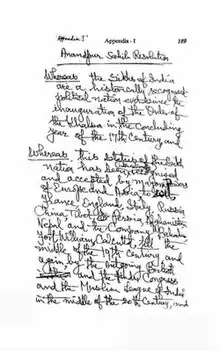 Appendix I
Appendix - I 189
Anandpur Sahib Resolution
Whereas the Sikhs of India
are a historically recognised
political nation ever since the
inauguration of the Order of
the Khalsa in the concluding
year of the 17th Century, and
Whereas this status of the Sikh
nation has been recognised
and accepted by major powers
of Europe and Asia
France, England, Russia
China, Tibet, Persia, Afghanistan
Nepal and the Company Bahadur
Fort William, Calcutta, till the
middle of the 19th Century, and
again by the outgoing British
and the Hindu Congress
and the Muslim League of India
in the middle of the 20th Century, and